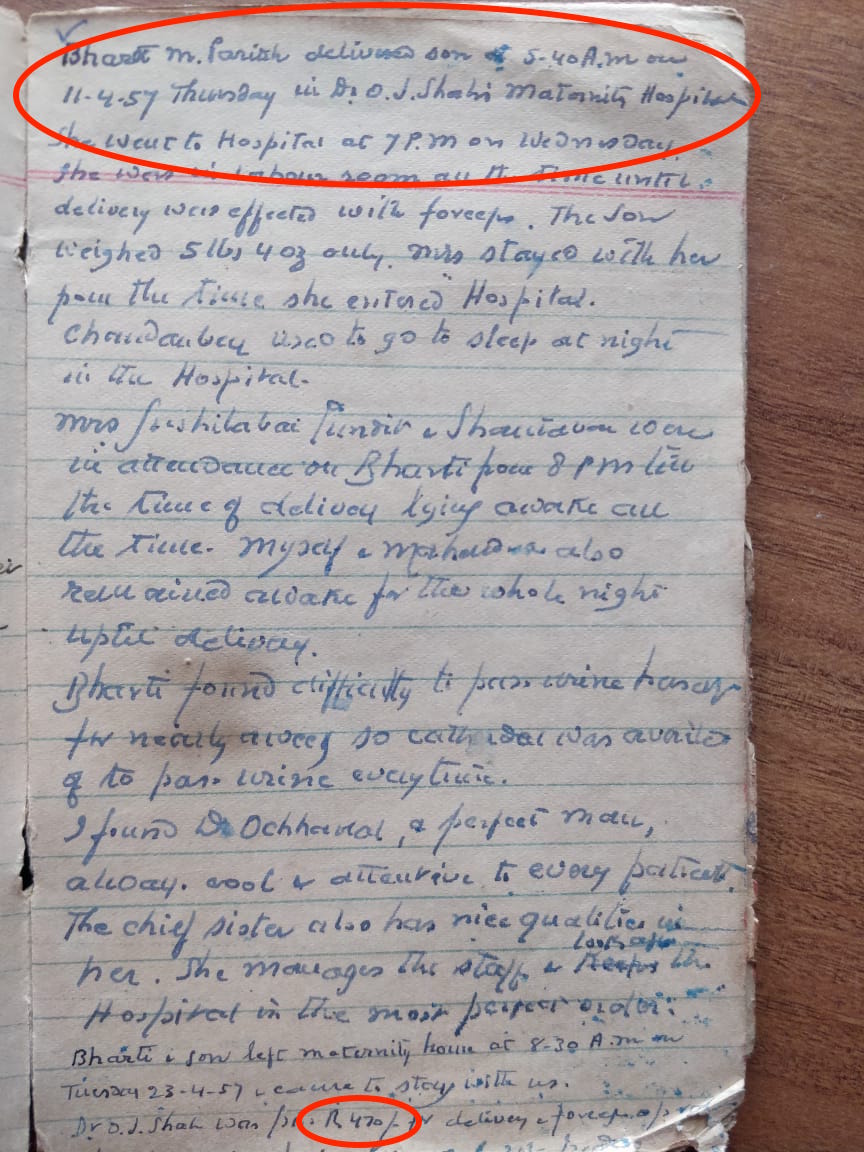 Bharti M. Parikh delivered son at 5-40 A.M on
11-4-57 Thursday in Dr O.J. Shah's Maternity Hospital
She went to Hospital at 7 P.M on Wednesday.
She was in Labour room all the time until
delivery was effected with forceps. The Son
weighed 5 lbs 4 oz only. Mrs stayed with her
from the time she entered Hospital.
used to go to sleep at night
in the Hospital.
Mrs Sushilabai & were
in attendance on Bharti from 8 P M till
the time of delivery lying awake all
the time. Myself & also
remained awake for the whole night
uptil delivery.
Bharti found difficulty to pass urine
for nearly a week so was availed
of to pass urine everytime.
I found Dr Ochhavlal, a perfect man,
always cool & attentive to every patient.
The chief sister also has nice qualities in
looks after
her. She manages the staff & keeps the
Hospital in the most perfect order.
Bharti & son left maternity home at 8-30 A.M on
Tuesday 23-4-57 & came to stay with us.
Dr O.J. Shah was for delivery & forceps